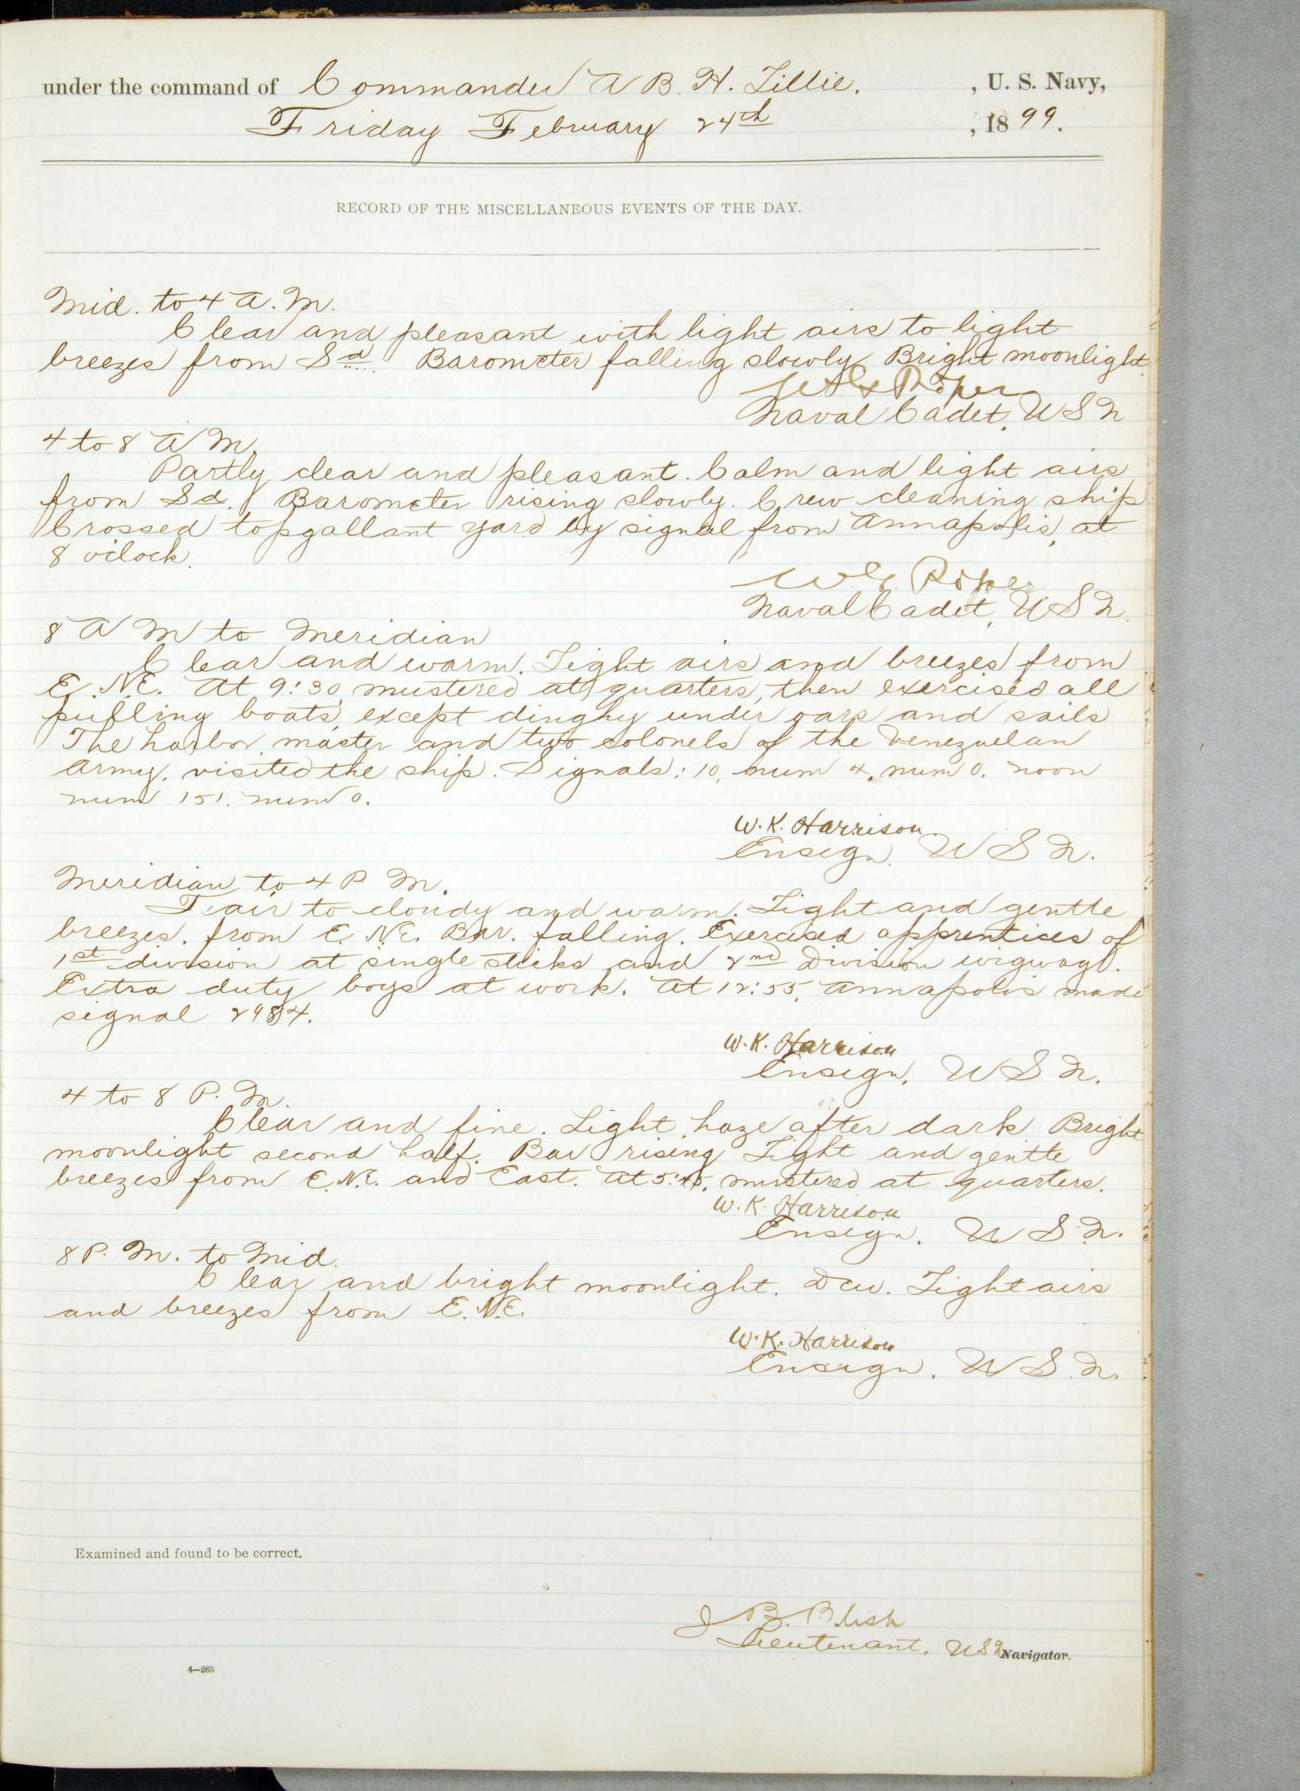 under the command of Commander A B. H. Lillie. , U. S. Navy,
Friday February 24th , 1899.
RECORD OF THE MISCELLANEOUS EVENTS OF THE DAY.
Mid. to 4 A. M.
Clear and pleasant with light airs to light
breezes from Sd. Barometer falling slowly Bright moonlight.
W G Roper
Naval Cadet, U S N
4 to 8 A M.
Partly clear and pleasant. Calm and light airs
from Sd. Barometer rising slowly. Crew cleaning ship
Crossed topgallant yard by signal from Annapolis, at
8 o'clock.
W G. Roper
Naval Cadet, U S N.
8 A M to Meridian
Clear and warm. Light airs and breezes from
E. N.E. At 9:30 mustered at quarters, then exercised all
pulling boats, except dinghy under oars and sails
The harbor master and two colonels of the Venezuelan
Army, visited the ship. Signals: 10, num 4, num 0. noon
num 151. num 0.
W. K. Harrison
Ensign. U S N.
Meridian to 4 P. M.
Fair to cloudy and warm. Light and gentle
breezes. from E. N.E. Bar. falling. Exercised apprentices of
1st division at single sticks and 2nd Division wigwag.
Extra duty boys at work. At 12:55, Annapolis made
signal 2984.
W. K. Harrison
Ensign, U S N.
4 to 8 P. M.
Clear and fine. Light haze after dark Bright
moonlight second half. Bar rising Light and gentle
breezes from E. N.E. and East. At 5:45, mustered at quarters.
W. K. Harrison
Ensign. U S. N.
8 P. M. to Mid.
Clear and bright moonlight. Dew. Light airs
and breezes from E. N.E.
W. K. Harrison
Ensign. U S. N.
Examined and found to be correct.
J B. Blish
Lieutenant. U S N Navigator.
4—265